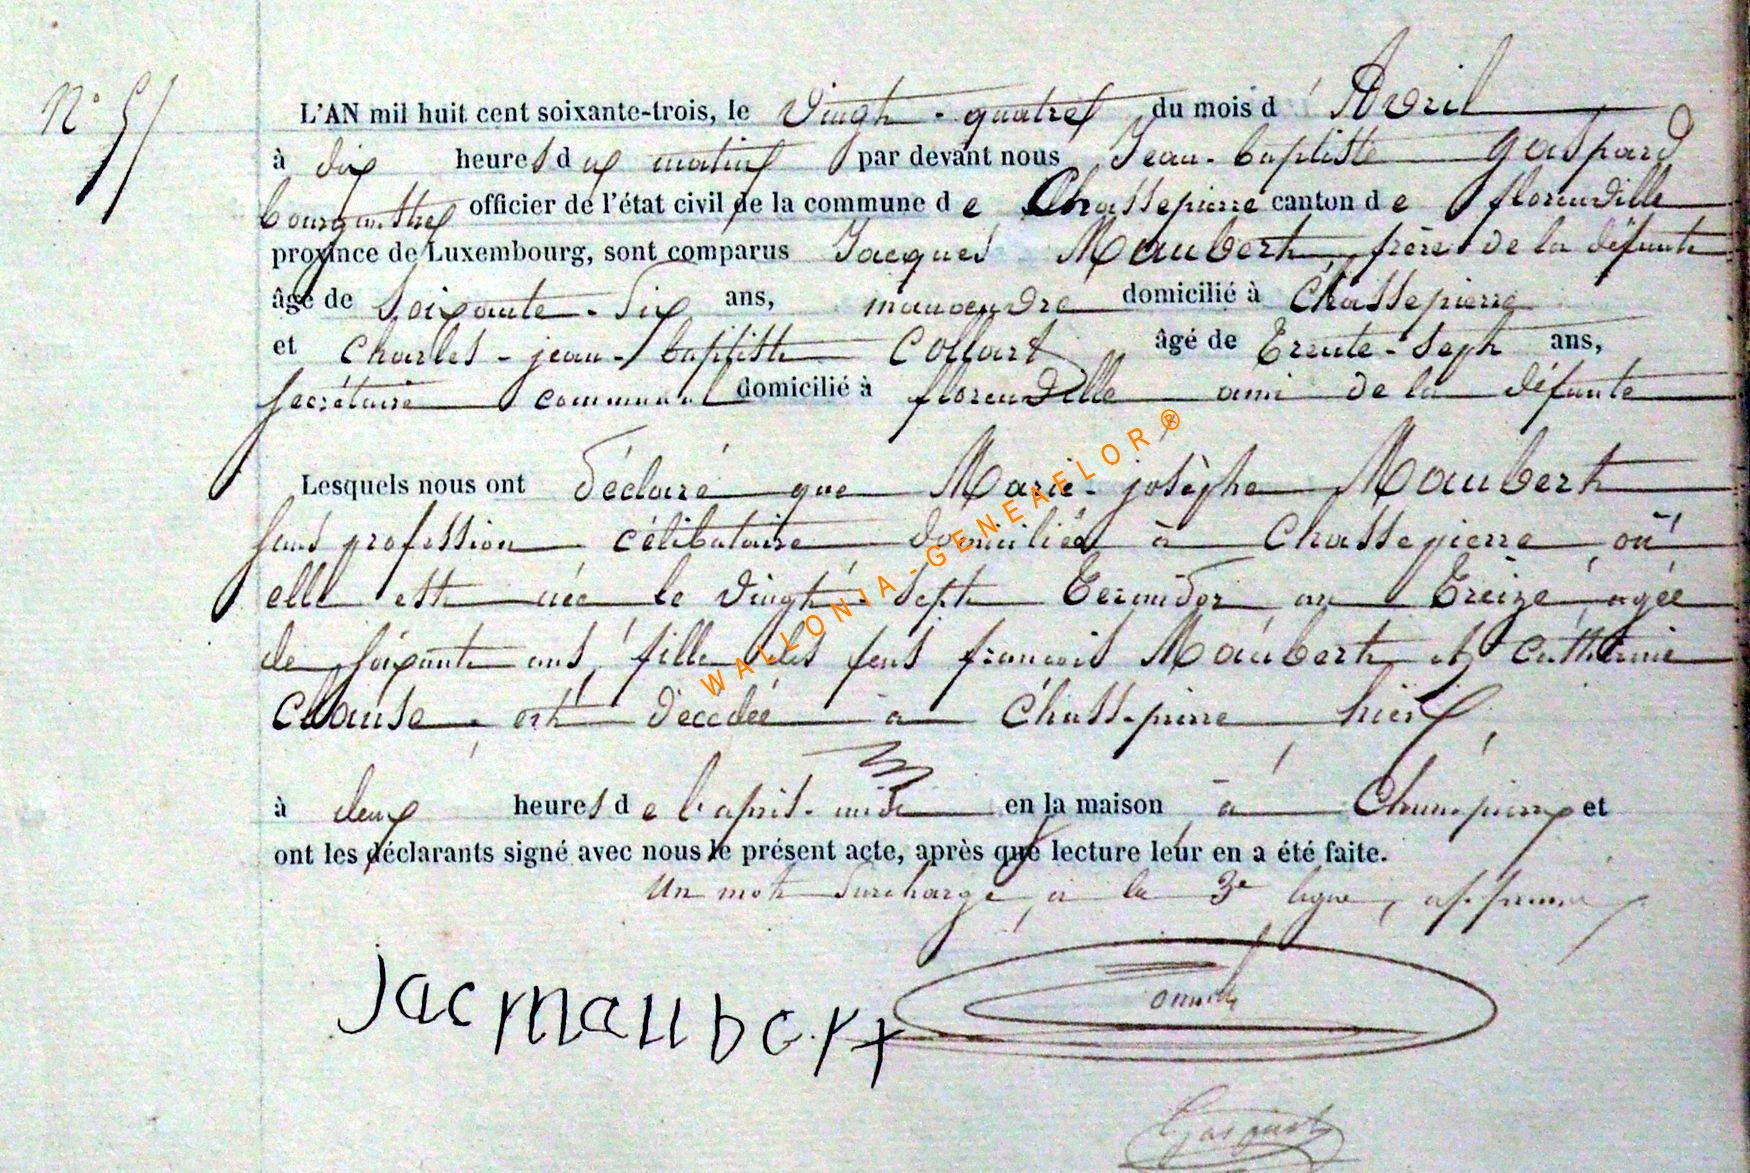 N° 5
L'AN mil huit cent soixante-trois, le vingt-quatre du mois d'Avril
à dix heures du matin par devant nous Jean-baptiste gaspard
bourgmestre officier de l'état civil de la commune de Chassepierre canton de florenville
province de Luxembourg, sont comparus Jacques Maubert, frère de la défunte
âgé de soixante-six ans, manoeuvre domicilié à Chassepierre
et Charles-jean-baptiste Collart âgé de trente-sept ans,
secrétaire communal domicilié à florenville ami de la défunte
Lesquels nous ont déclaré que Marie-josèphe Maubert
sans profession célibataire domiciliée à Chassepierre où
elle est née le vingt-sept termidor an treize agée
de soixante ans, fille des feus francois Maubert et Catherine
Clause, est décédée à Chassepierre hier
à deux heures de l'après-midi en la maison à Chassepierre et
ont les déclarants signé avec nous le présent acte, après que lecture leur en a été faite.
Un mot surchargé, à la 3e ligne, approuvé
jacmaubert
WALLONIA-GENEAFLOR®